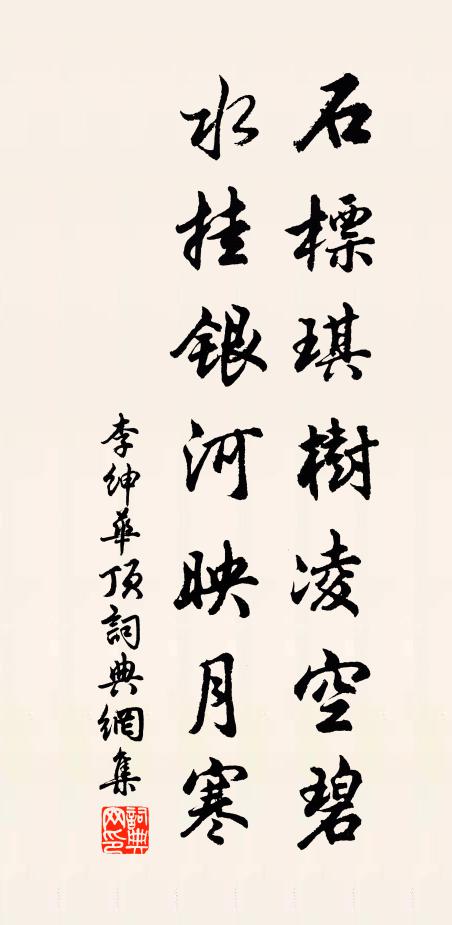 石標琪樹凌空碧
水挂銀河映月寒
李紳華頂詞典網集
詞典網印